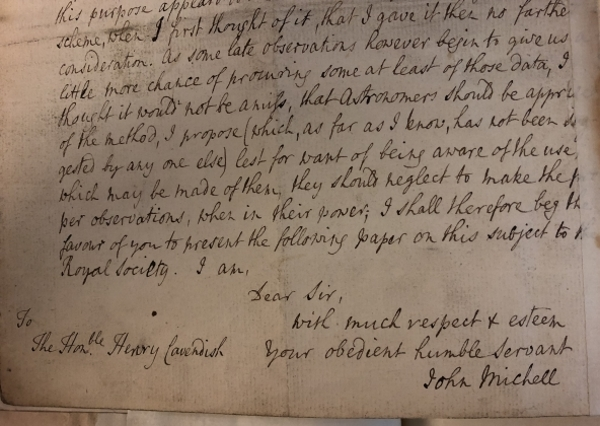 this purpose appear
scheme, when I first thought of it, that I gave it then no farthe
consideration. As some late observations however begin to give us
little more chance of procuring some at least of those data, I
thought it would not be amiss, that Astronomers should be appri
of the method, I propose (which, as far as I know, has not been
gested by any one else) lest for want of being aware of the use
which may be made of them, they should neglect to make the p
per observations, when in their power; I shall therefore beg th
favour of you to present the following paper on this subject to
Royal Society. I am,
Dear Sir,
with much respect & esteem
To
The Honble. Henry Cavendish Your obedient humble Servant
John Michell